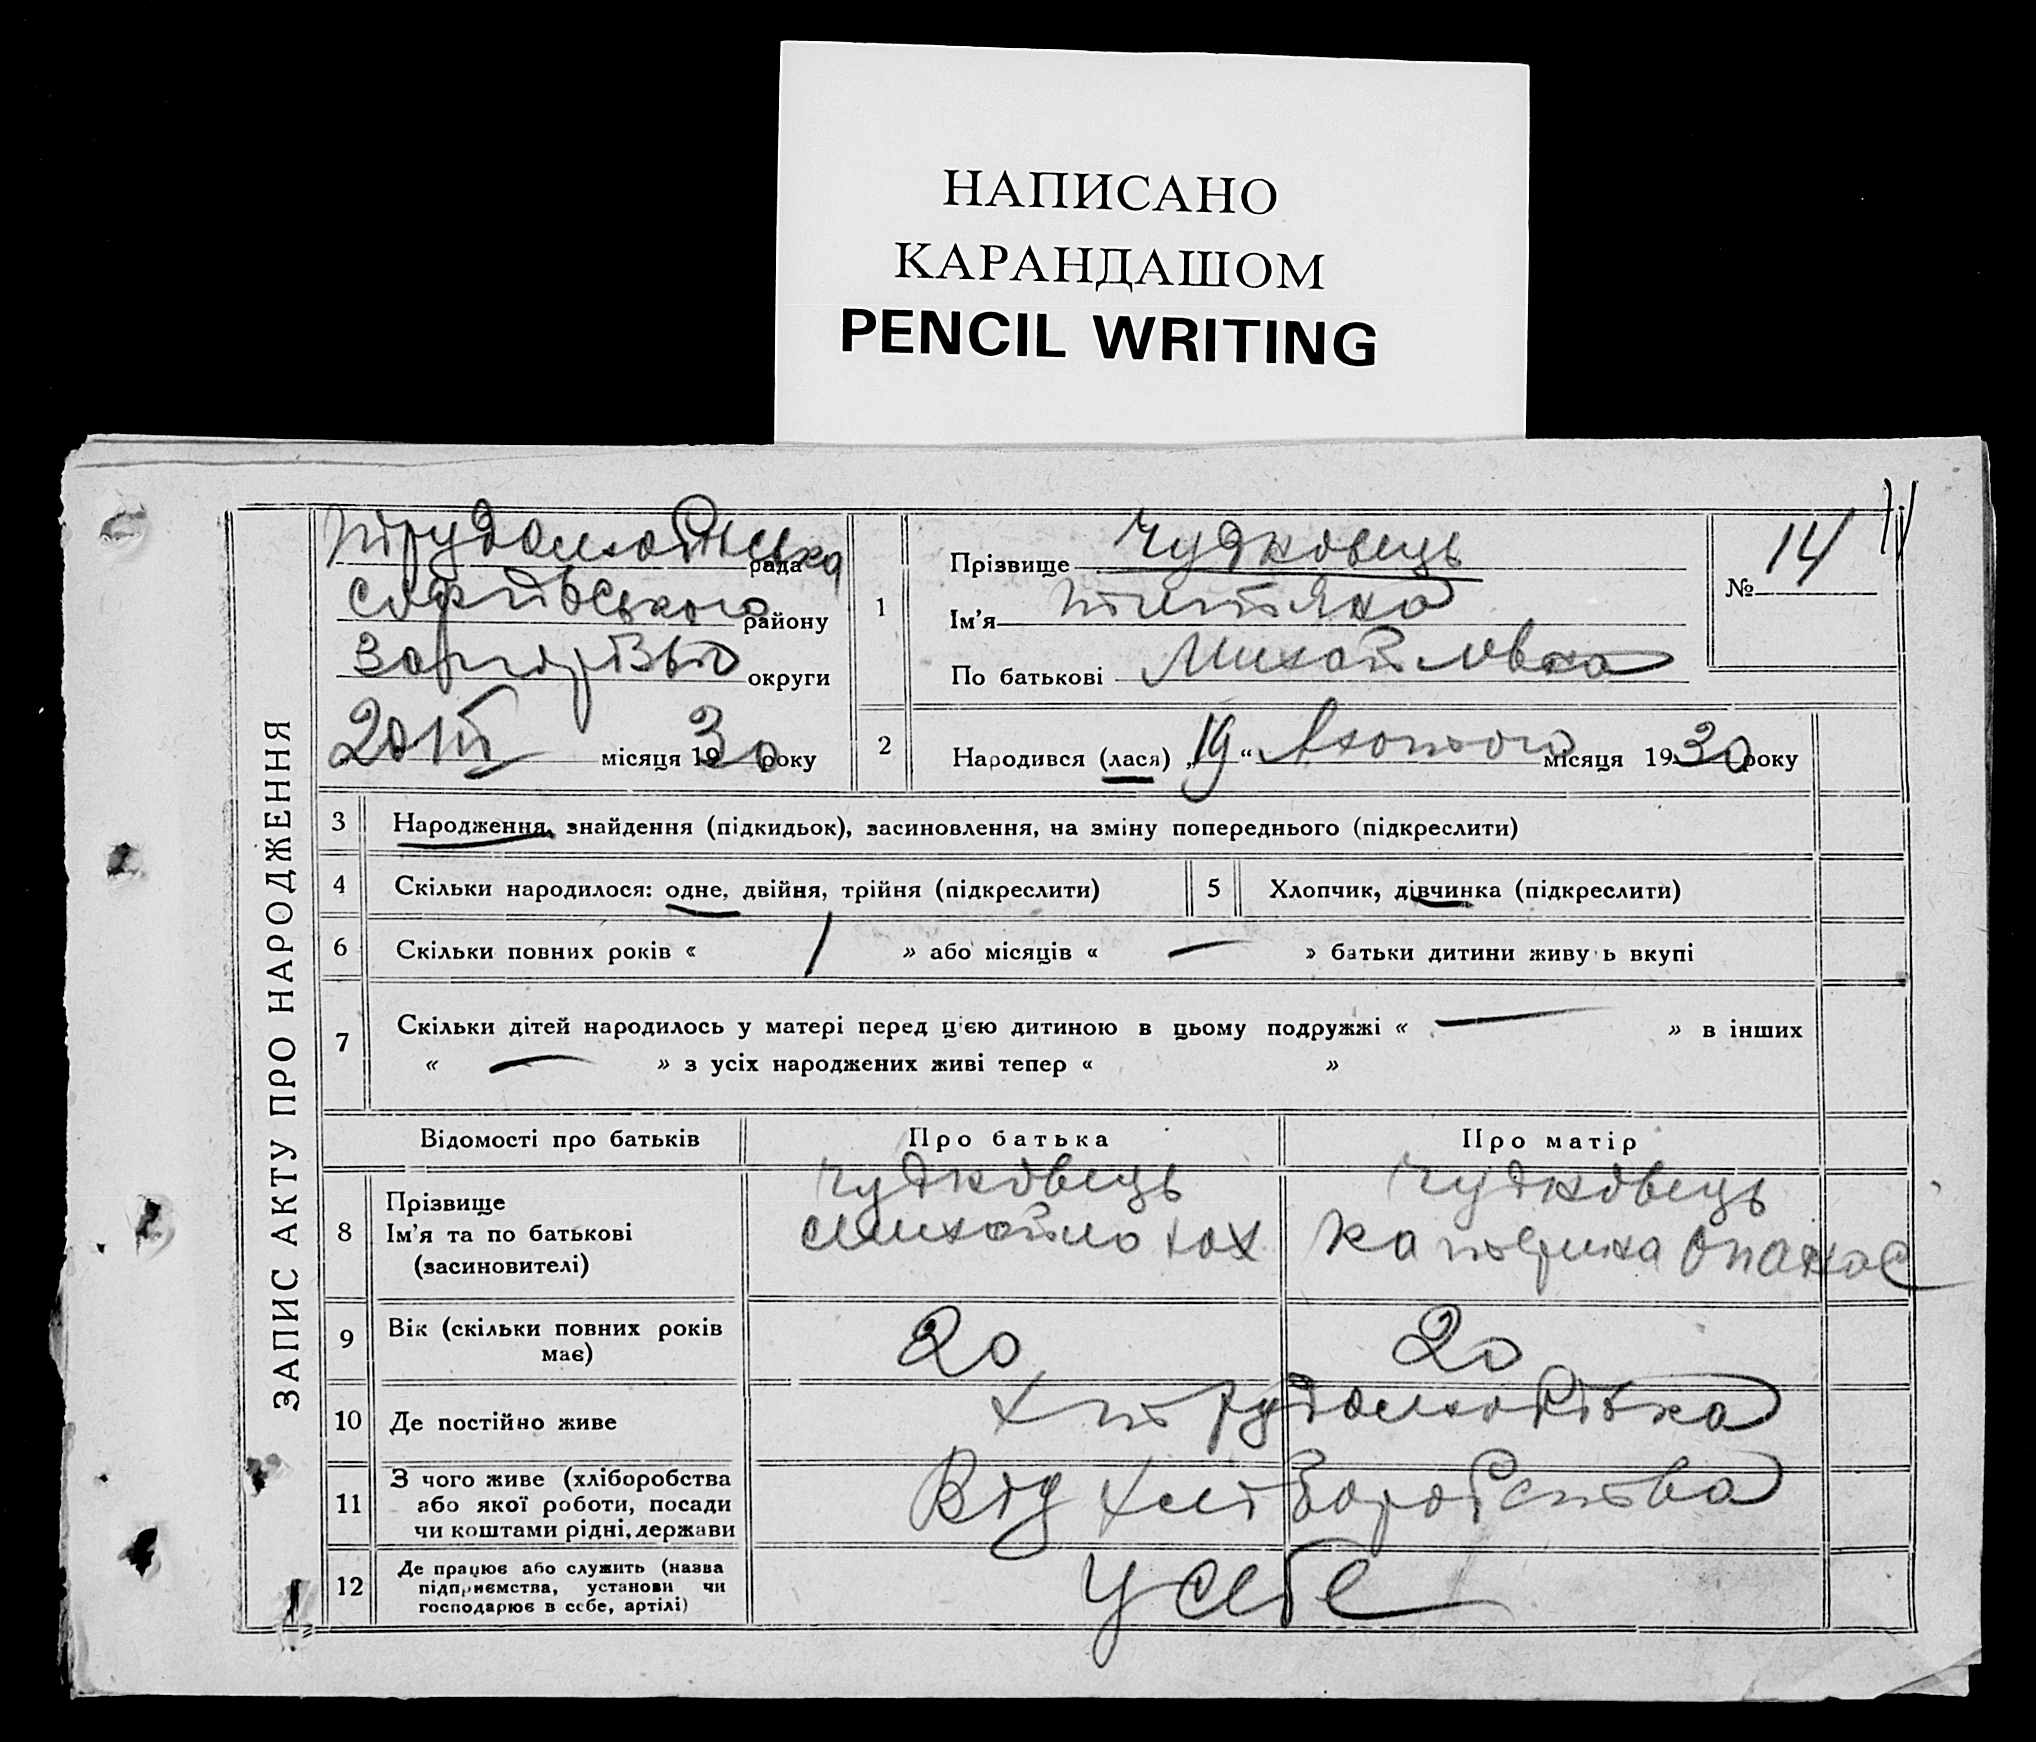 НАПИСАНО
КАРАНДАШОМ
PENCIL WRITING
ЗАПИС АКТУ ПРО НАРОДЖЕННЯ
Трудолюбівська рада
Софиївського району
Запорізько округи
20 III місяця 1930 року
1
Прізвище Чудновець
Ім'я Титяна
По батькові Михайловна
№ 14
11
2
Народився (лася) „19“ Лютого місяця 1930 року
3
Народження, знайдення (підкидьок), засиновлення, на зміну попереднього (підкреслити)
4
Скільки народилося: одне, двійня, трійня (підкреслити)
5
Хлопчик, дівчинка (підкреслити)
6
Скільки повних років « 1 » або місяців « — » батьки дитини живуть вкупі
7
Скільки дітей народилось у матері перед ц'єю дитиною в цьому подружжі « — » в інших
« — » з усіх народжених живі тепер « »
Відомості про батьків
Про батька
Про матір
8
Прізвище
Ім'я та по батькові
(засиновителі)
Чудковець
Михайло
Чудковець
Катерина Опанас
9
Вік (скільки повних років
має)
20
20
10
Де постійно живе
х Трудолюбівка
11
З чого живе (хліборобства
або якої роботи, посади
чи коштами рідні, держави
Від хліборобства
12
Де працює або служить (назва
підприємства, установи чи
господарює в себе, артілі)
У себе